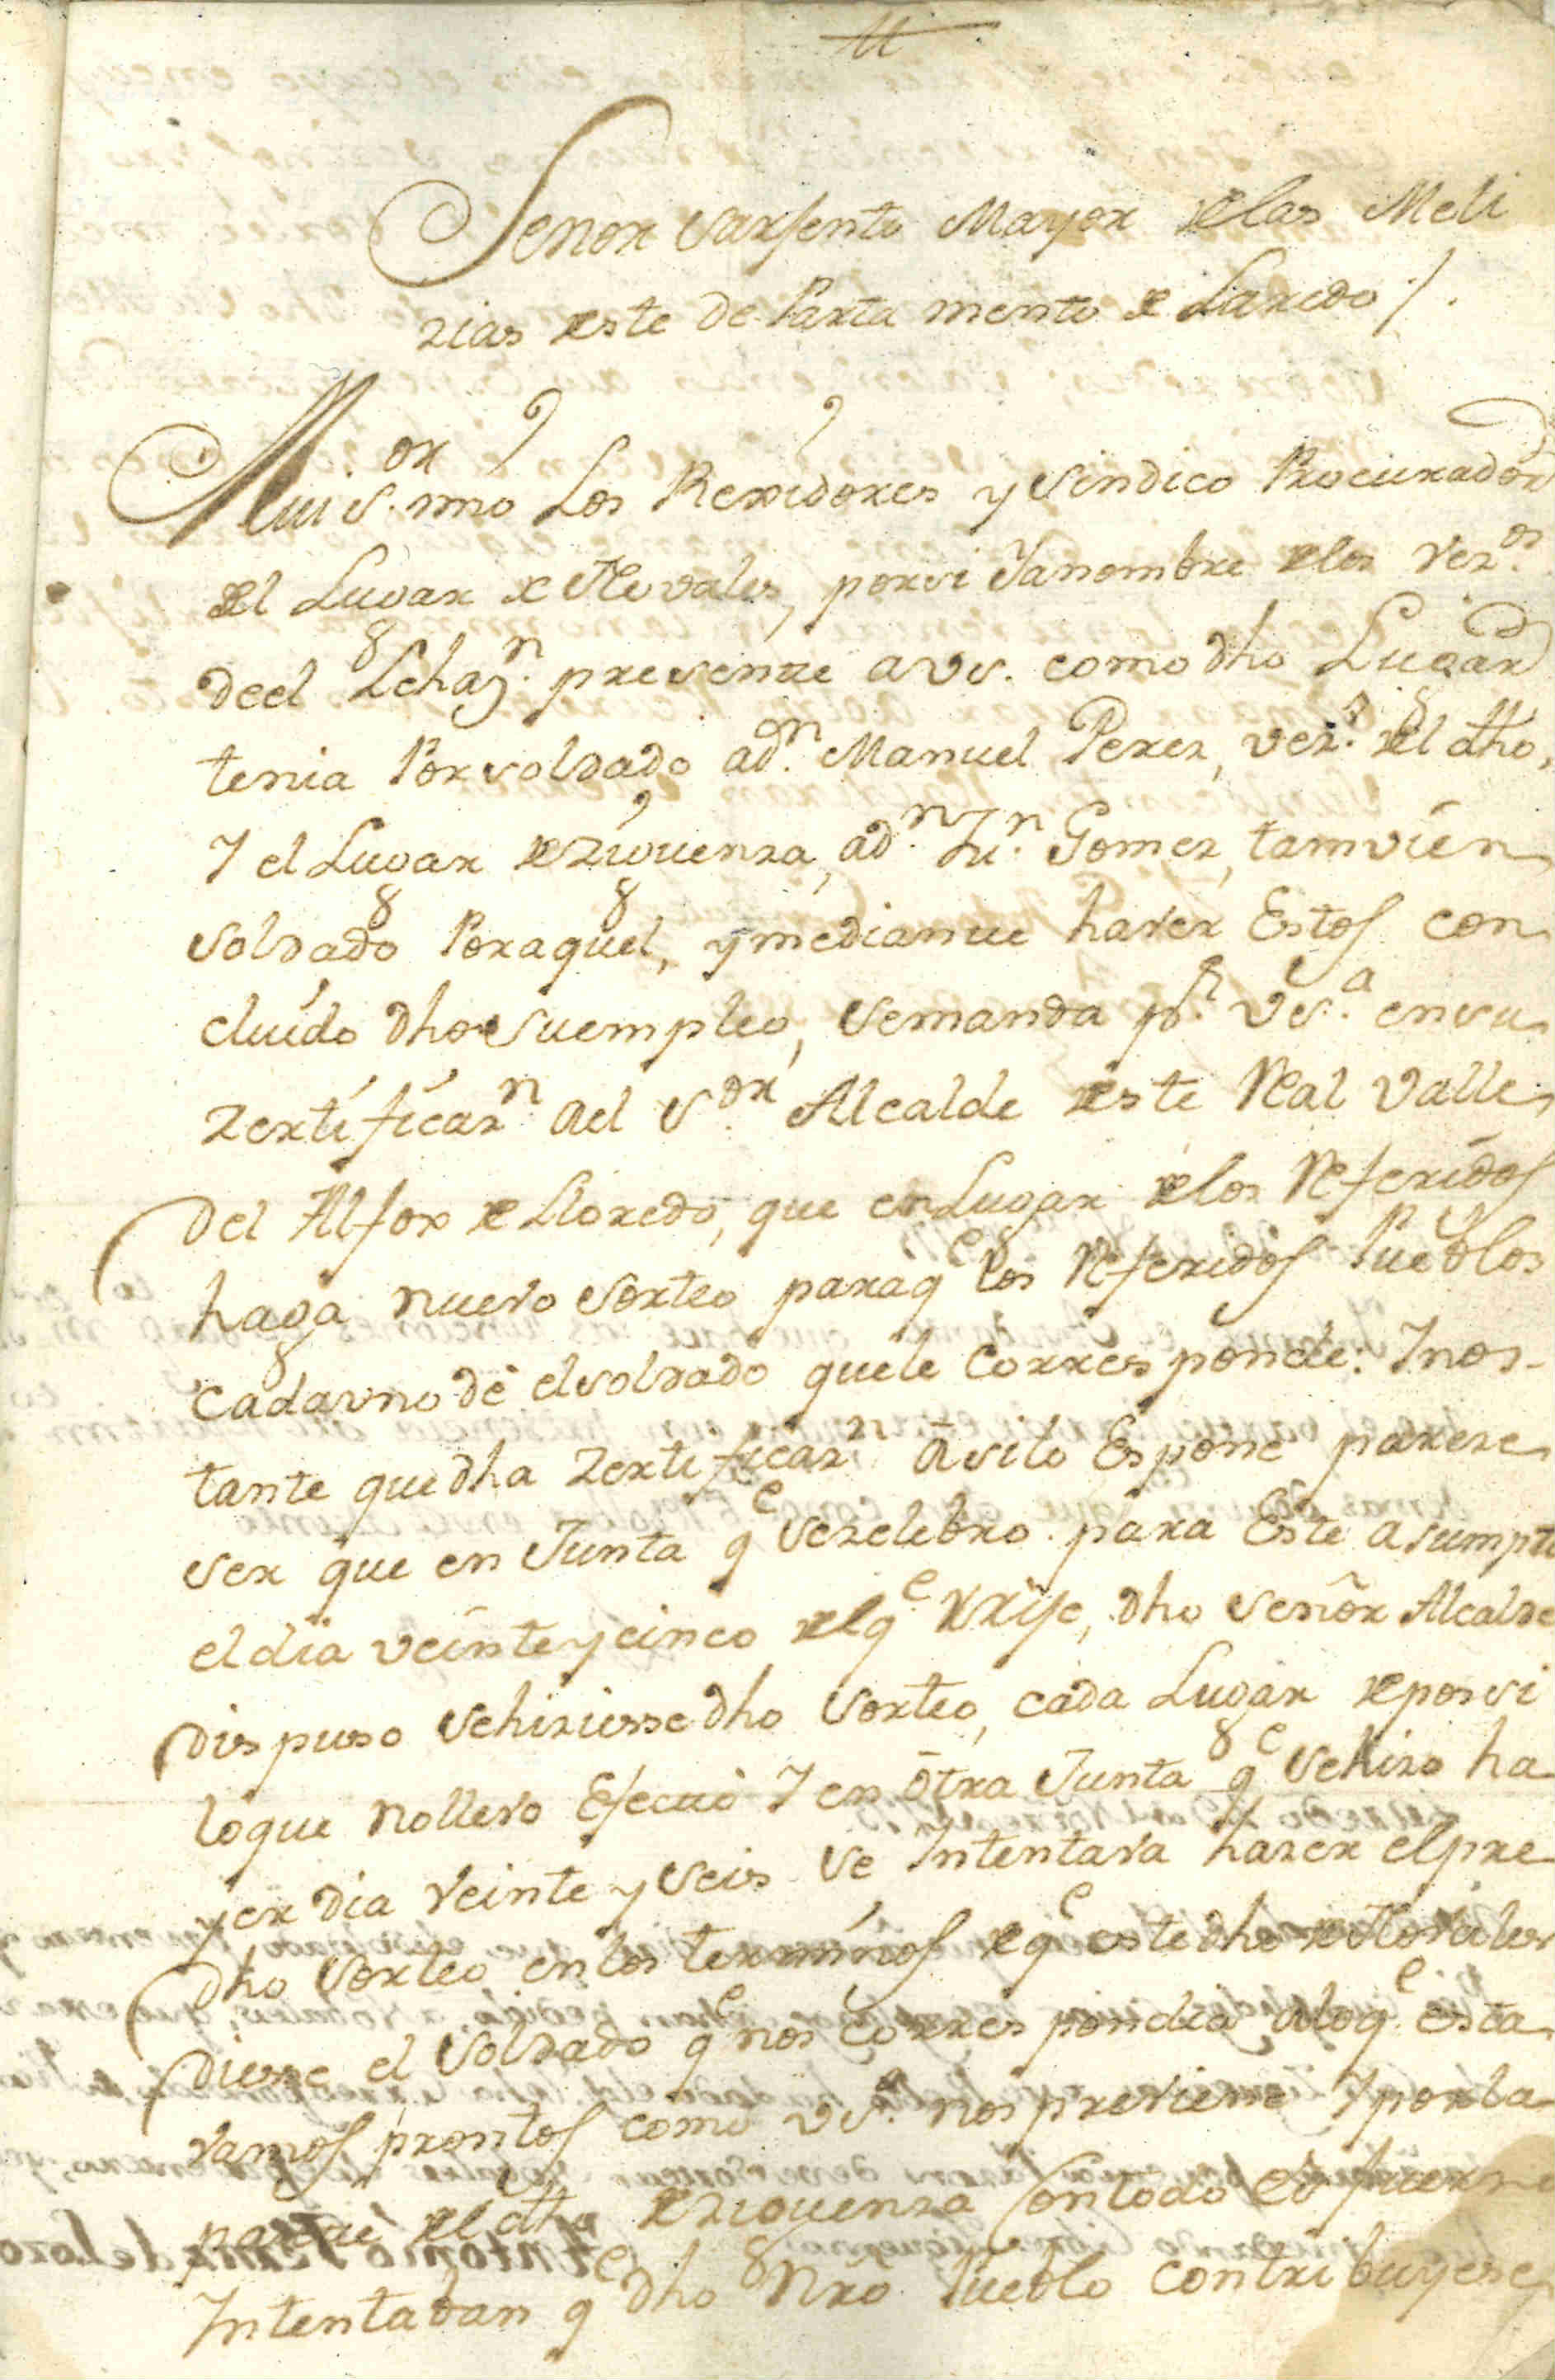 Señor Sarjento Mayor de las Meli
zias deste de Partamento de Laredo /.
Mui S.or mio Los Rexidores y Sindico Procurador
del Lugar de Novales, por si Y a nombre de los vez.os
de el Lehaz.n presente a VS. como dho Lugar
tenia Por soldado a d.n Manuel Perez, vez.o del dho,
Y el Lugar de Ziguenza, a d.n Ju.n Gomez, tamvien
soldado Por aquel, y mediante haver Estos con
cluido dho su empleo, se manda p.r VS.a en su
Zertificaz.n a el S.or Alcalde deste Real Valle
Del Alfoz de Lloredo, que en Lugar de los Referidos
haga nuevo sorteo para q.e los Referidos Pueblos
cada uno dé el soldado que le corresponde: Y nos
tante que dha Zertificaz.n asi lo Espone pareze
ser que en Junta q.e se zelebro para Este asumpto
el dia veinte y cinco del q.e Rije, dho señor Alcalde
Dispuso se hiziesse dho Sorteo, cada Lugar de por si
lo que no llevo Efecto Y en otra Junta q.e se hizo ha
yer dia veinte y seis se Intentava hazer el pre
dho Sorteo en los terminos de q.e este dho de Novales
Diesse el Soldado q.e nos correspondia a lo q.e esta
vamos prontos como VS.a nos previene Y por la
parte del dho de Ziguenza Con todo esfuerzo
Intentaban q.e dho Nro Pueblo contribuyese